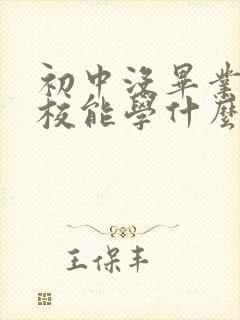 初中沒畢業
校能學什麼
王保丰